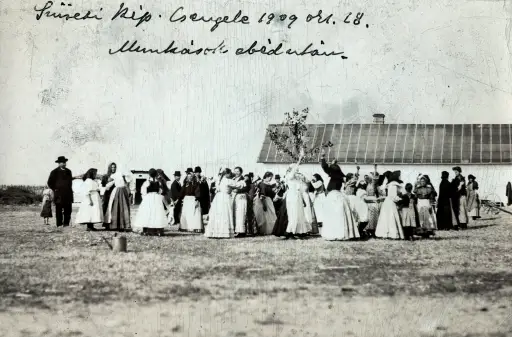 Szüreti kép. Csengele 1909 okt. 18.
Munkások ebéd után.